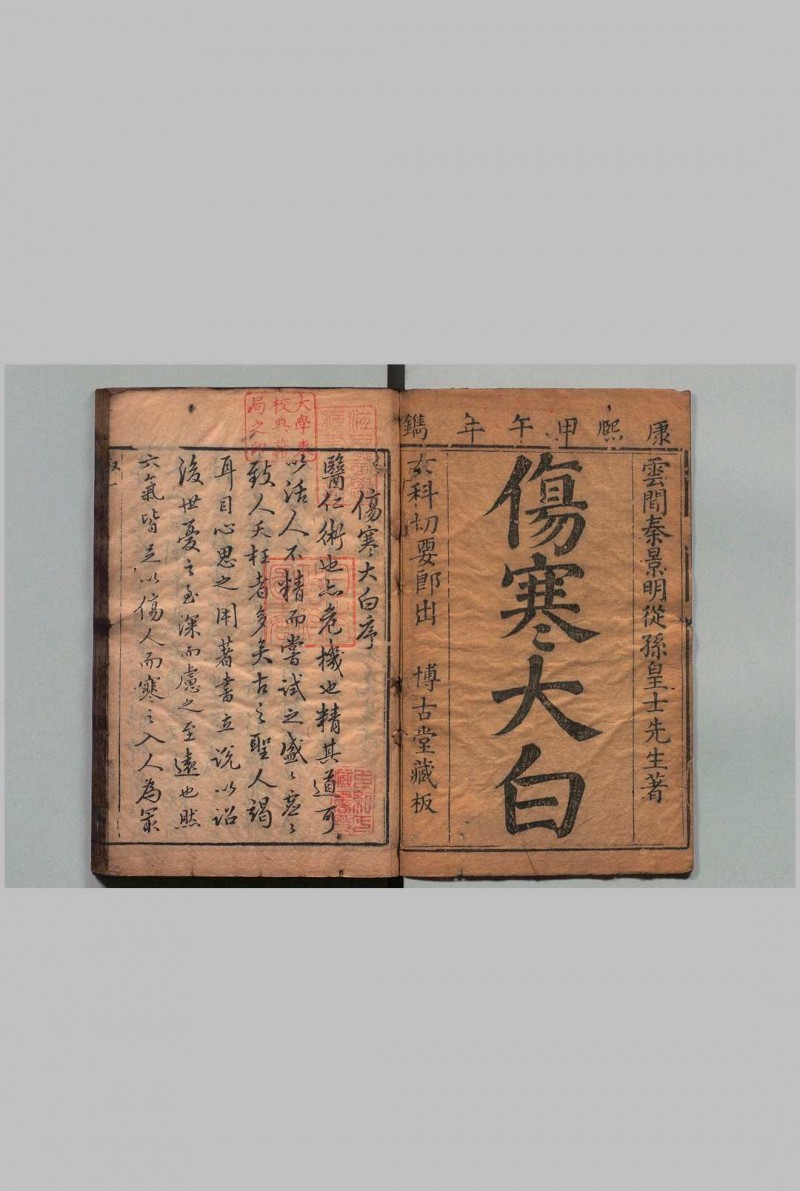 康熙甲午年鐫
雲間秦景明從孫皇士先生著
傷寒大白
女科切要即出　博古堂藏板
傷寒大白序
醫仁術也亦危機也精其道可
以活人不精而嘗試之盛盛虛虛
致人夭枉者多矣古之聖人竭
耳目心思之用著書立說以詔
後世憂之至深而慮之至遠也然
六氣皆足以傷人而寒之入人為最
大學東
校典
局之印